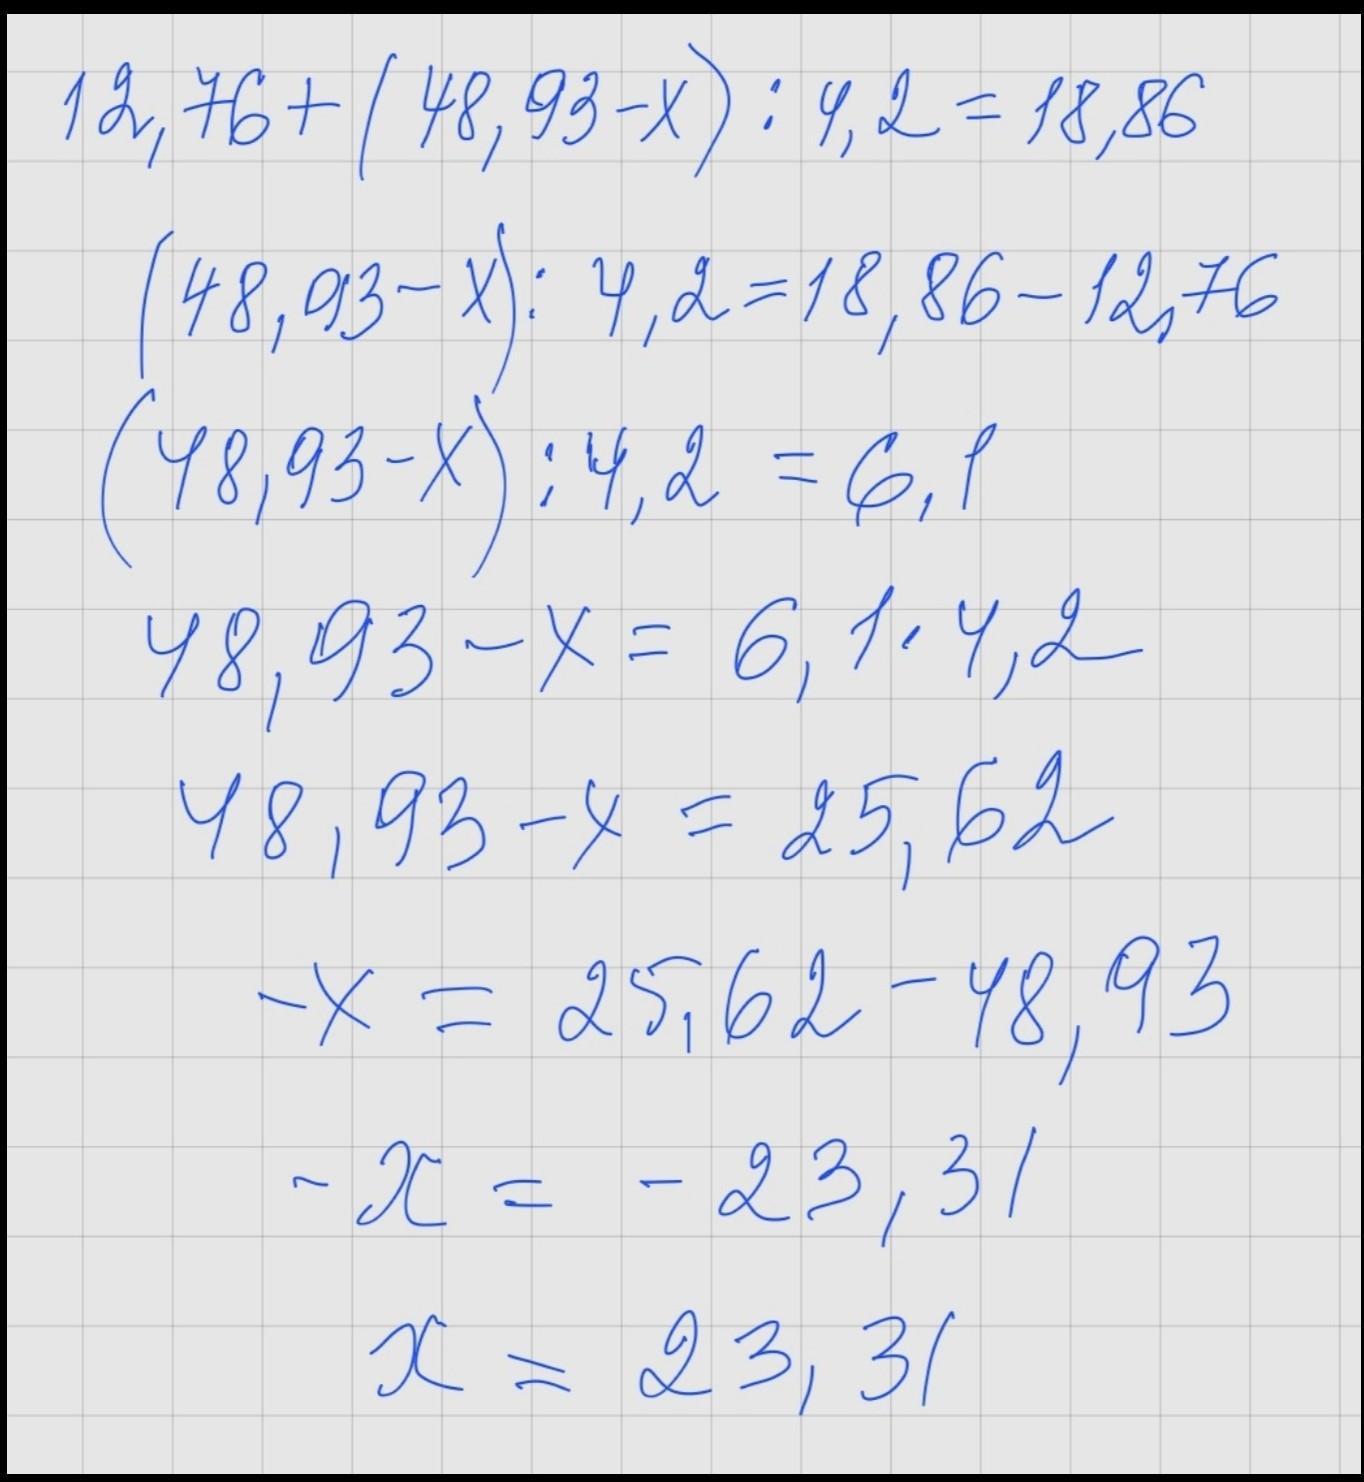 12,76+(48,93-x):4,2=18,86
(48,93-x):4,2=18,86-12,76
(48,93-x):4,2=6,1
48,93-x=6,1·4,2
48,93-x=25,62
-x=25,62-48,93
-x=-23,31
x=23,31